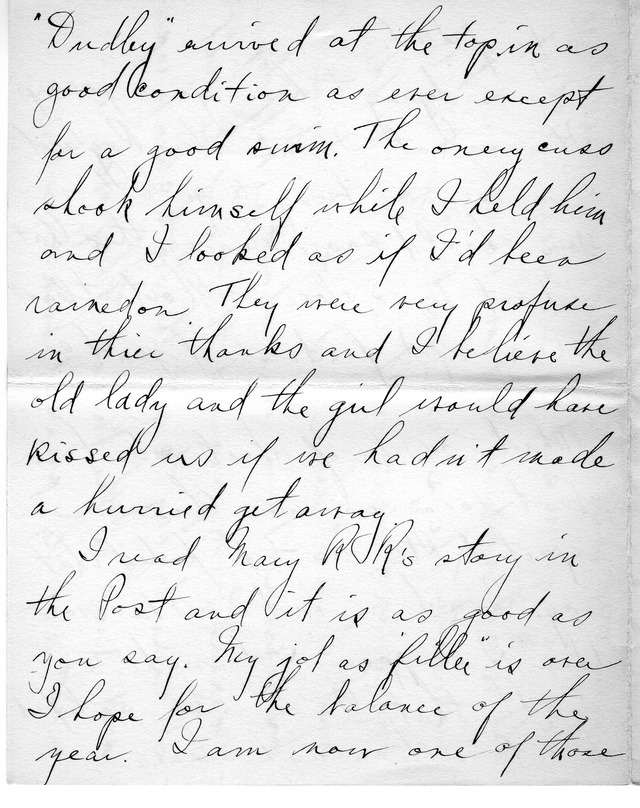 "Dudley" arrived at the top in as
good condition as ever except
for a good swim. The onery cuss
shook himself while I held him
and I looked as if I'd been
rained on. They were very profuse
in thier thanks and I believe the
old lady and the girl would have
kissed us if we hadn't made
a hurried get away
I read Mary R R's story in
the Post and it is as good as
you say. My job as "filler" is over
I hope for the balance of the
year. I am now one of those